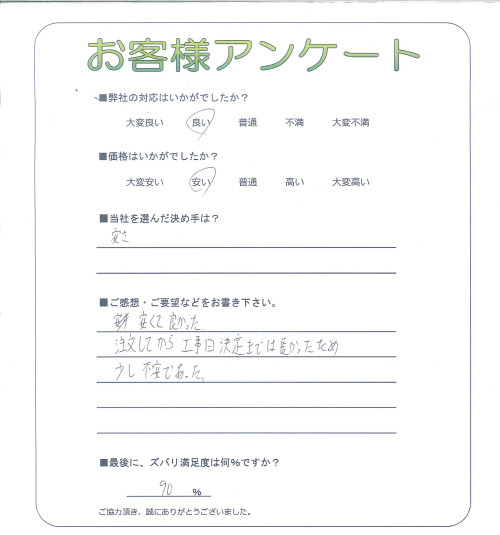 お客様アンケート
■弊社の対応はいかがでしたか？
大変良い 良い 普通 不満 大変不満
■価格はいかがでしたか？
大変安い 安い 普通 高い 大変高い
■当社を選んだ決め手は？
安さ
■ご感想・ご要望などをお書き下さい。
安くて良かった。
注文してから工事日決定までは長かったため
少し不安であった。
■最後に、ズバリ満足度は何％ですか？
90 ％
ご協力頂き、誠にありがとうございました。